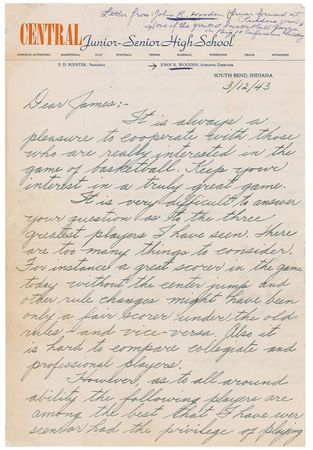 Letter from: John R. Wooden (
one of the greatest
CENTRAL Junior-Senior High School
ATHLETIC ACTIVITIES BASKETBALL GOLF FOOTBALL TENNIS BASEBALL WRESTLING TRACK SWIMMING
P. D. POINTER, Principal JOHN R. WOODEN, Athletic Director
SOUTH BEND, INDIANA
3/12/43
Dear James:-
It is always a
pleasure to cooperate with those
who are really interested in the
game of basketball. Keep your
interest in a truly great game.
It is very difficult to answer
your question as to the three
greatest players I have seen. There
are too many things to consider.
For instance a great scorer in the game
today without the center jump and
other rule changes might have been
only a fair scorer under the old
rules - and vice-versa. Also it
is hard to compare collegiate and
professional players.
However, as to all around
ability the following players are
among the best that I have ever
seen or had the privilege of playing